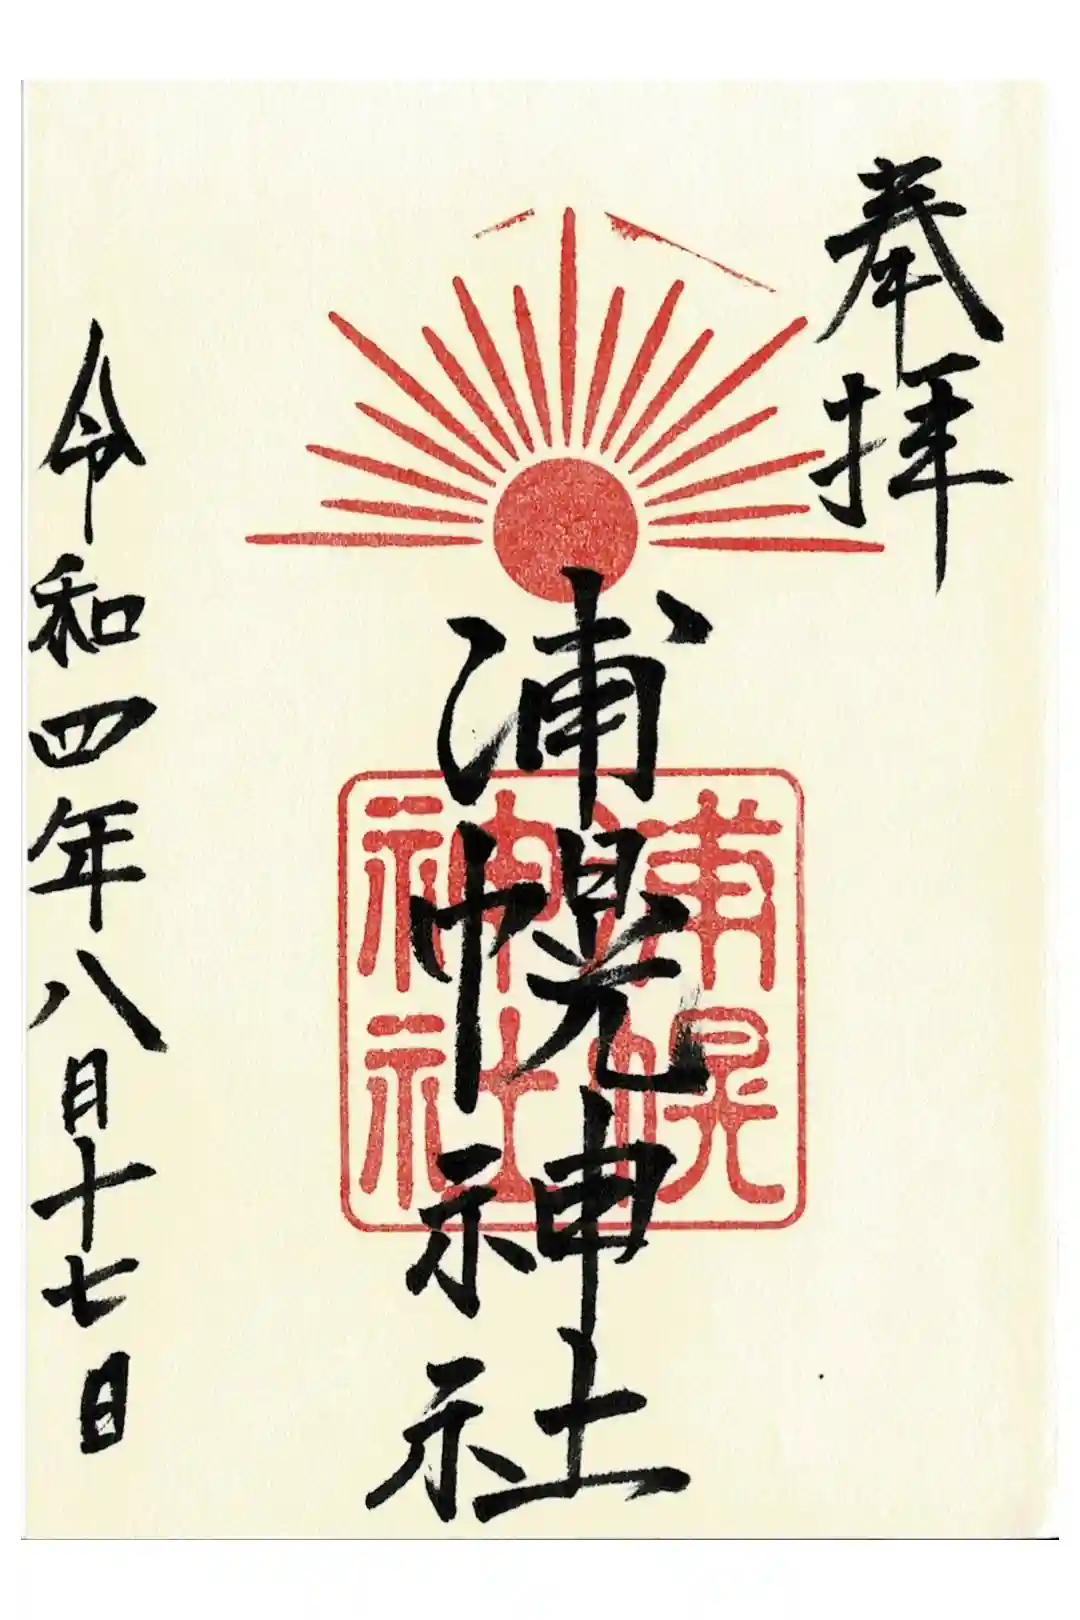 奉拝
浦幌神社
浦幌
神社
令和四年八月十七日